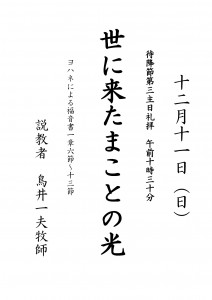 十二月十一日（日）
待降節第三主日礼拝　午前十時三十分
世に来たまことの光
ヨハネによる福音書一章六節～十三節
説教者　鳥井一夫牧師